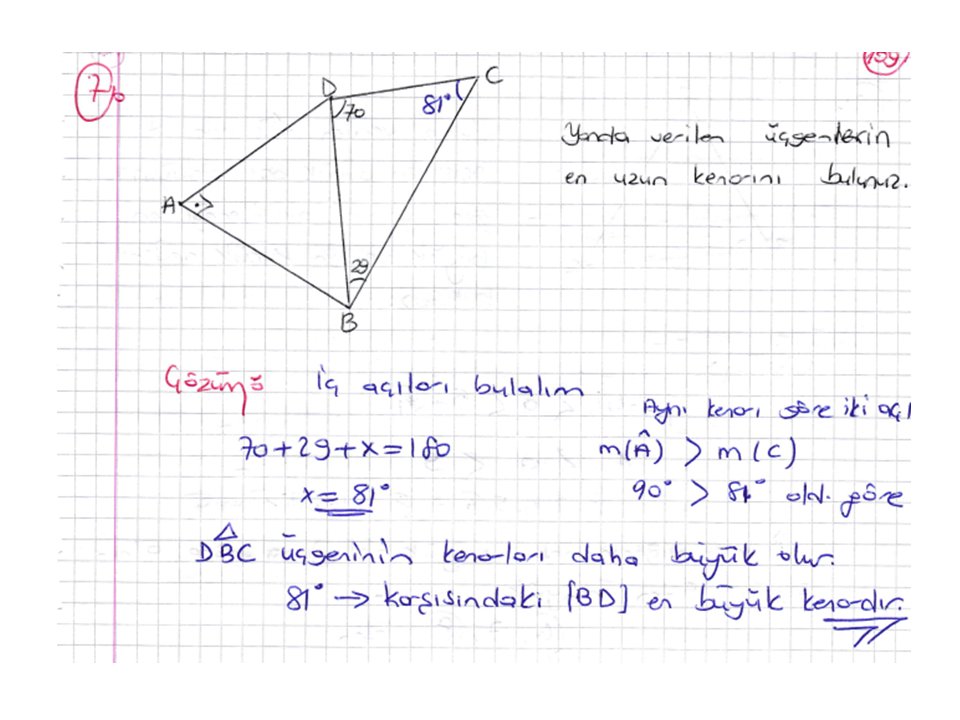 7)
159
D
C
70
81°
Yanda verilen üçgenlerin
en uzun kenarını bulunuz.
A
29
B
Çözüm: İç açıları bulalım
Aynı kenarı göre iki açı
70+29+x=180
m(Â) > m(C)
x=81°
90° > 81° old. göre
DBC üçgeninin kenarları daha büyük olur.
81° → karşısındaki [BD] en büyük kenardır.